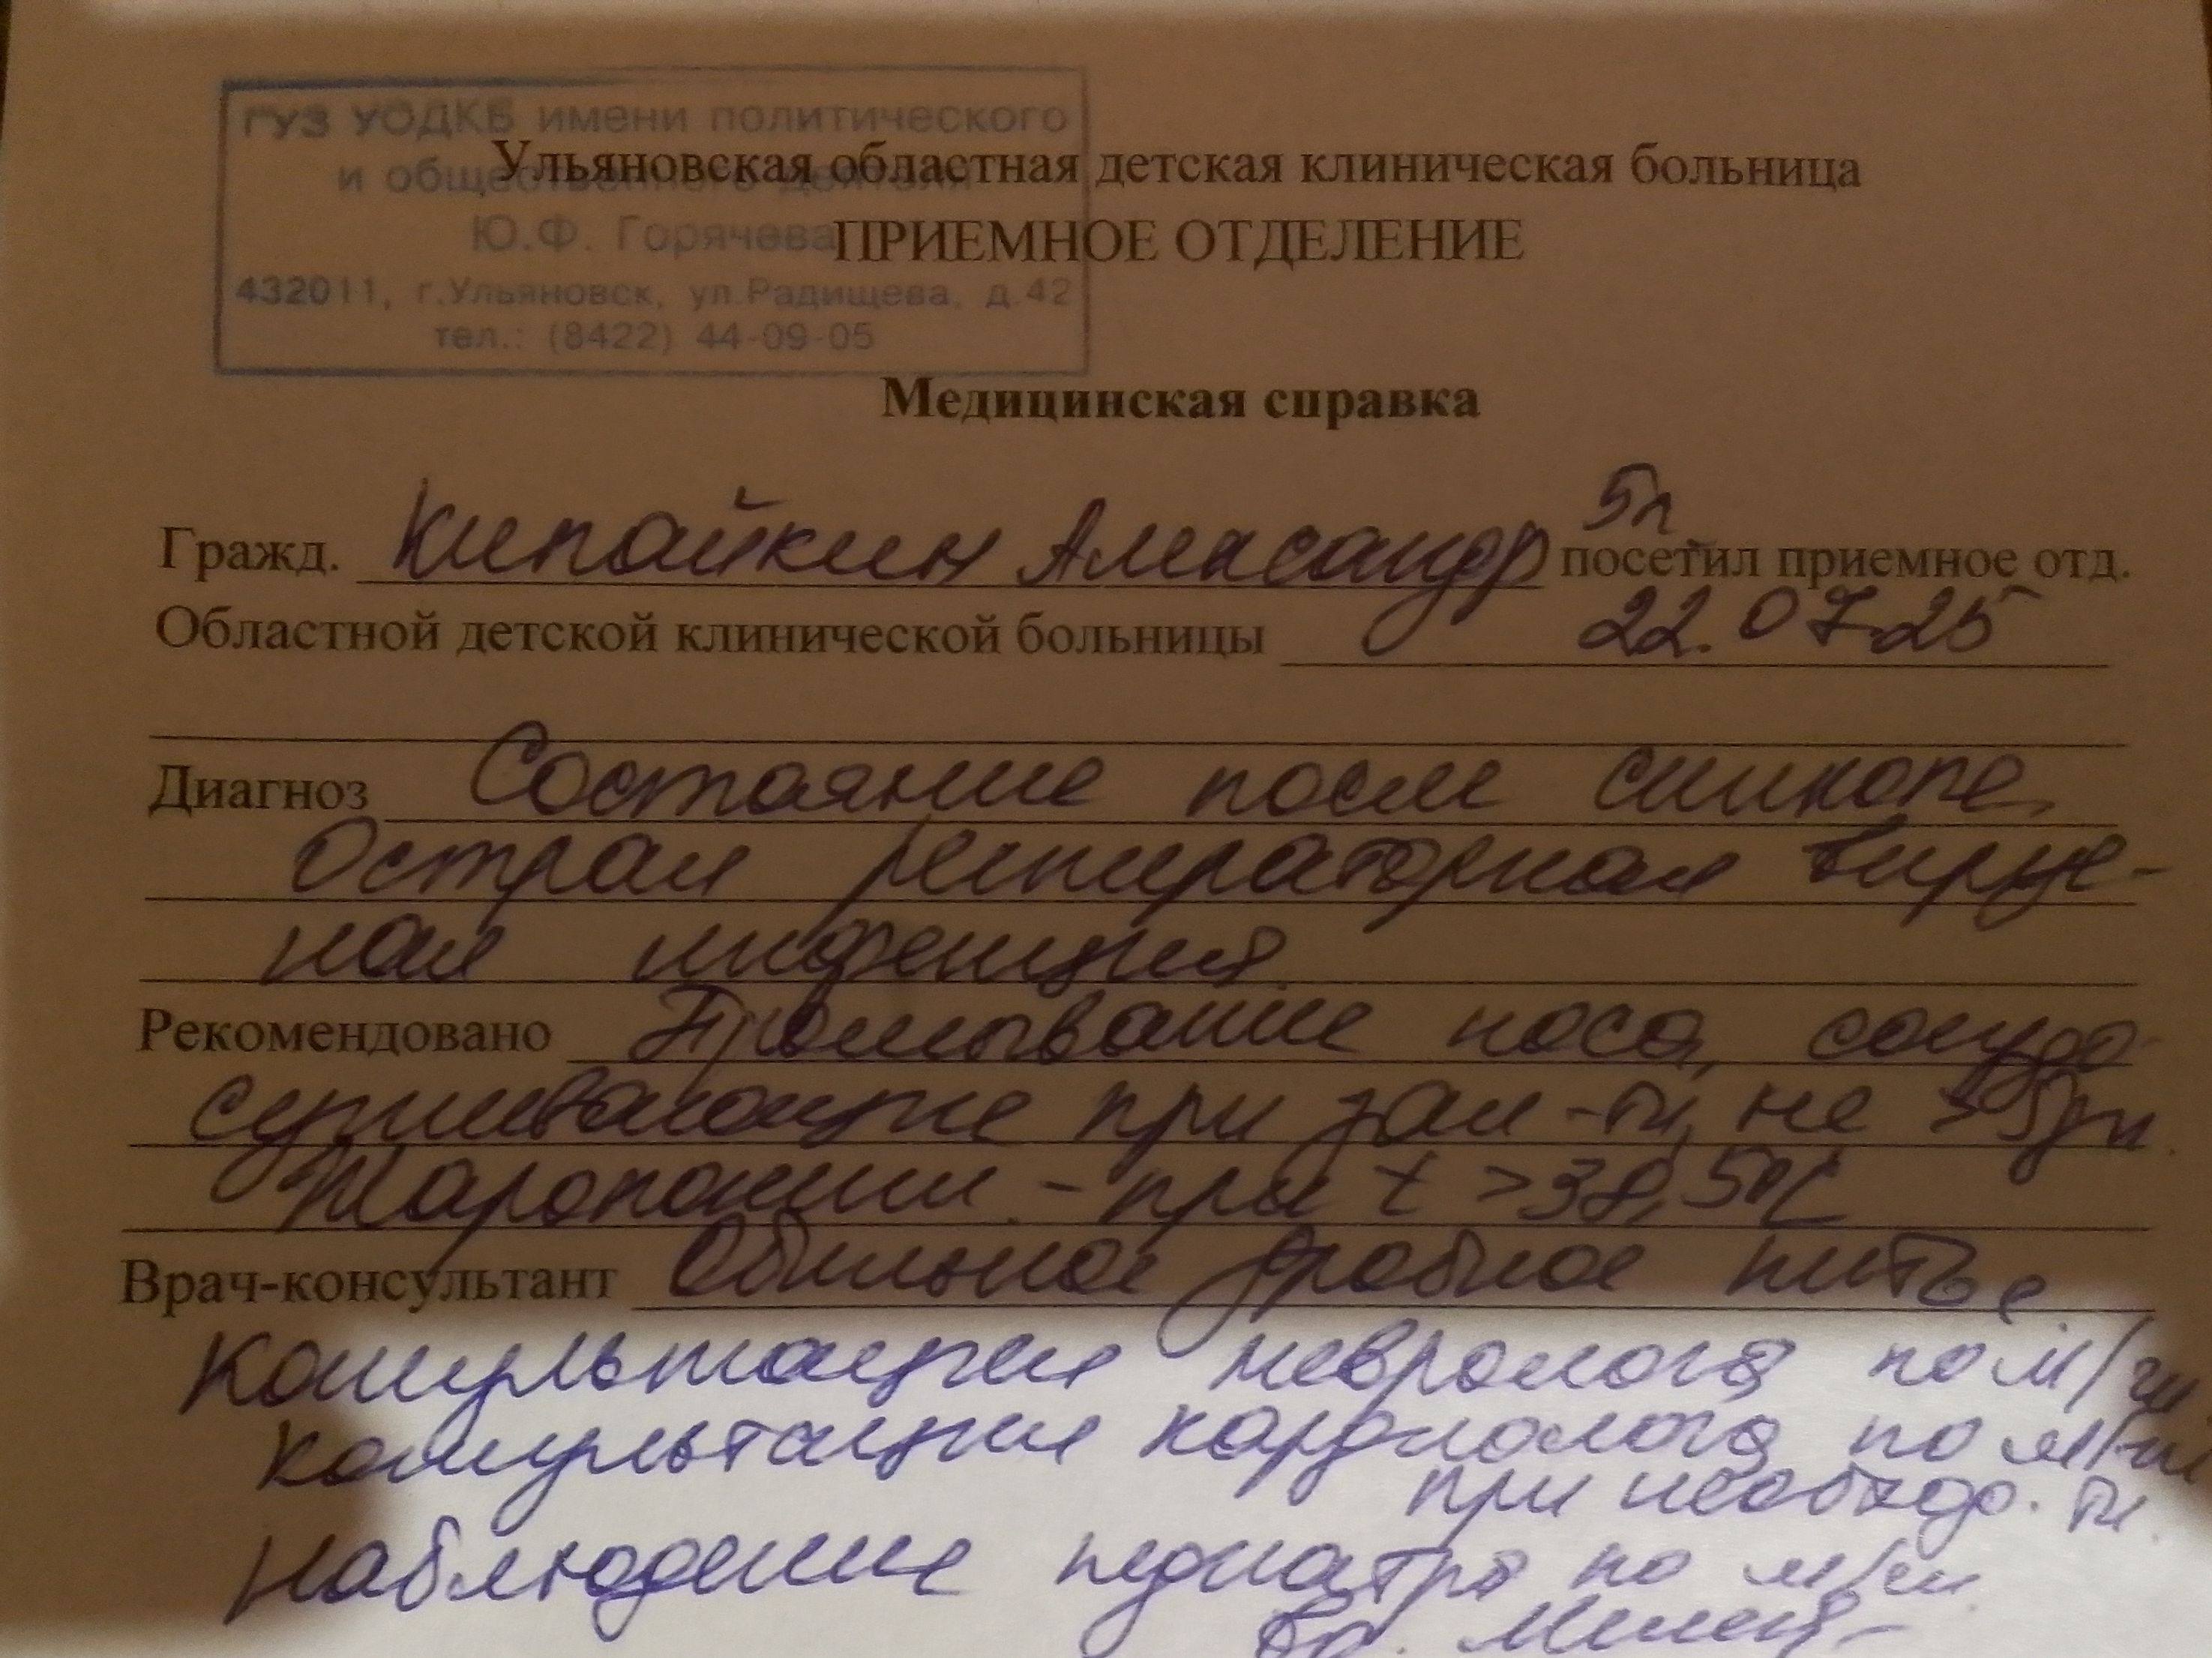 ГУЗ УОДКБ имени политического
и общественного деятеля
Ю.Ф. Горячева
432011, г.Ульяновск, ул.Радищева, д.42
тел.: (8422) 44-09-05
Ульяновская областная детская клиническая больница
ПРИЕМНОЕ ОТДЕЛЕНИЕ
Медицинская справка
5л
Гражд. Кипайкин Александр посетил приемное отд.
Областной детской клинической больницы 22.07.25
Диагноз Состояние после синкопе.
Острая респираторная вирус-
ная инфекция.
Рекомендовано Промывание носа, сосудо-
суживающие при зал-ти, не > 5дн.
Жаропониж. - при t >38,5°C
Врач-консультант Обильное дробное питье
Консультация невролога по м/ж
Консультация кардиолога по м/ж
при необходо-ти.
Наблюдение педиатра по м/ж
Вр.